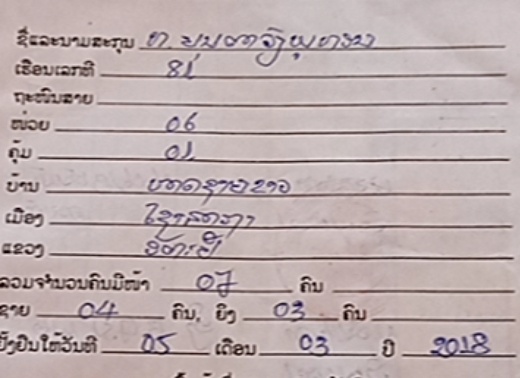 ຊື່ແລະນາມສະກຸນ ທ.
ເຮືອນເລກທີ 81
ຖະໜົນສາຍ
ໜ່ວຍ 06
ຄຸ້ມ 01
ບ້ານ ຫາດຊາຍຂາວ
ເມືອງ ໄຊເສດຖາ
ແຂວງ ອັດຕະປື
ລວມຈຳນວນຄົນມີໜ້າ 07 ຄົນ
ຊາຍ 04 ຄົນ, ຍິງ 03 ຄົນ
ຢັ້ງຢືນໃຫ້ວັນທີ 05 ເດືອນ 03 ປີ 2018